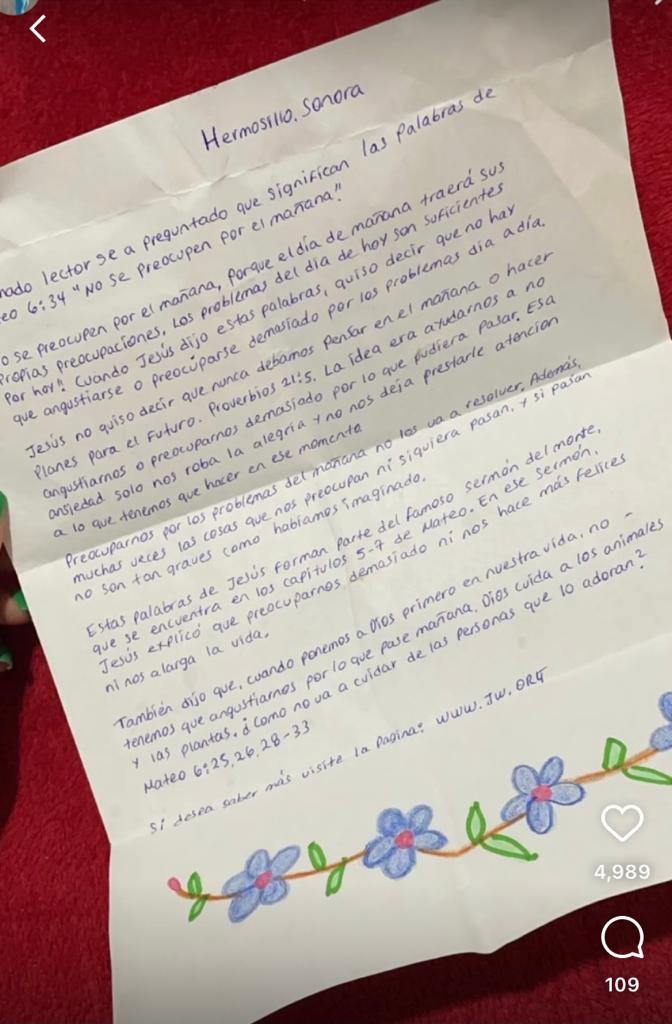 Hermosillo. Sonora
lector se a preguntado que significan las palabras de
6:34 "No se preocupen por el mañana"!
se preocupen por el mañana, porque el día de mañana traerá sus
propias preocupaciones. Los problemas del día de hoy son suficientes
por hoy"! Cuando Jesús dijo estas palabras, quiso decir que no hay
que angustiarse o preocuparse demasiado por los problemas día a día.
Jesús no quiso decir que nunca debamos pensar en el mañana o hacer
planes para el futuro. Proverbios 21:5. La idea era ayudarnos a no
angustiarnos o preocuparnos demasiado por lo que pudiera pasar. Esa
ansiedad solo nos roba la alegría y no nos deja prestarle atención
a lo que tenemos que hacer en ese momento
Preocuparnos por los problemas del mañana no los va a resolver. Además,
muchas veces las cosas que nos preocupan ni siquiera pasan. y si pasan
no son tan graves como habíamos imaginado.
Estas palabras de Jesús forman parte del famoso sermón del monte,
que se encuentra en los capítulos 5-7 de Mateo. En ese sermón,
Jesús explicó que preocuparnos demasiado ni nos hace más felices
ni nos alarga la vida.
También dijo que, cuando ponemos a Dios primero en nuestra vida, no -
tenemos que angustiarnos por lo que pase mañana. Dios cuida a los animales
y las plantas. ¿Como no va a cuidar de las personas que lo adoran?
Mateo 6:25,26,28-33
Si desea saber más visite la pagina: WWW.JW.ORG
4,989
109